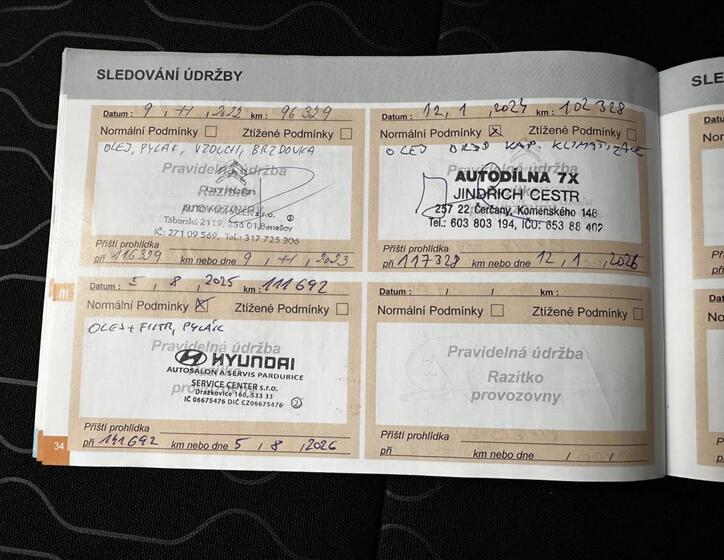 SLEDOVÁNÍ ÚDRŽBY
Datum : 9 , 11 , 2022 km : 96329
Normální Podmínky Ztížené Podmínky
OLEJ, PYLÁK, VZDUCH, BRZDOVKA
Pravidelná údržba
Razítko
provozovny
Táborská 2119, 256 01 Benešov
IČ: 271 09 569, Tel.: 317 725 906
Příští prohlídka
při 116329 km nebo dne 9 , 11 , 2023
Datum : 12 , 1 , 2024 km : 102328
Normální Podmínky Ztížené Podmínky
OLEJ BRZD KAP. KLIMATIZACE
AUTODÍLNA 7X
JINDŘICH CESTR
257 22 Čerčany, Komenského 146
Tel.: 603 803 194, IČO: 653 88 402
Příští prohlídka
při 117328 km nebo dne 12 , 1 , 2026
Datum : 5 , 8 , 2025 km : 111692
Normální Podmínky Ztížené Podmínky
OLEJ + FILTR, PYLÁK
Pravidelná údržba
HYUNDAI
AUTOSALON A SERVIS PARDUBICE
SERVICE CENTER s.r.o.
Dražkovice 160, 533 33
IČ 06675476 DIČ CZ06675476 2
Příští prohlídka
při 141692 km nebo dne 5 , 8 , 2026
Datum : / / km :
Normální Podmínky Ztížené Podmínky
Pravidelná údržba
Razítko
provozovny
Příští prohlídka
při km nebo dne / /
34
SLE
Datum
Norm
Datum :
Norm